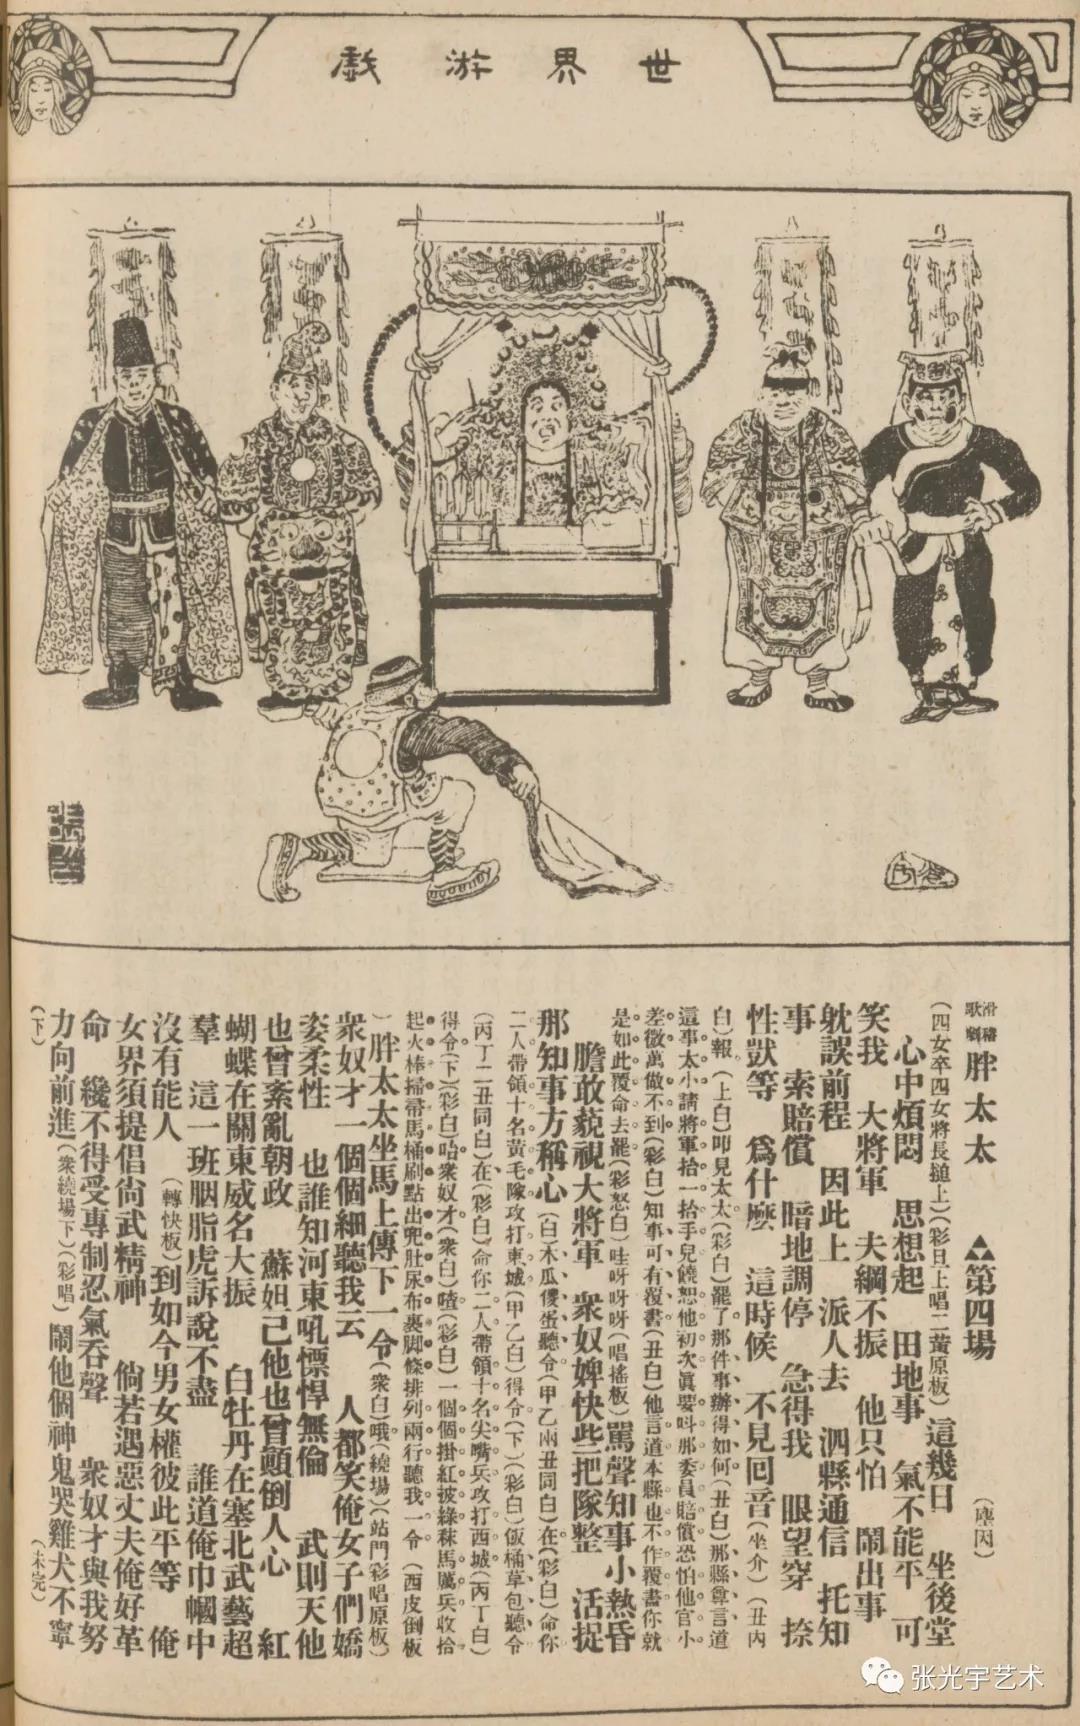 世界游戲
滑稽歌劇 胖太太 第四場
（四女卒四女將長搥上）（彩旦上唱二黃原板）這幾日　坐後堂
心中煩悶　思想起　田地事　氣不能平　可
笑我　大將軍　夫綱不振　他只怕　鬧出事
躭誤前程　因此上　派人去　泗縣通信　托知
事　索賠償　暗地調停　急得我　眼望穿　捺
性獃等　爲什麼　這時候　不見回音（坐介）（丑内
白）報（上白）叩見太太（彩白）罷了那件事辦得如何（丑白）那縣尊言道
這事太小請將軍拾一拾手兒饒恕他初次眞要叫那委員賠償恐怕他官小
差微萬做不到（彩白）知事可有覆書（丑白）他言道本縣也不作覆書你就
是如此覆命去罷（彩怒白）哇呀呀呀（唱搖板）罵聲知事小熱昏
膽敢藐視大將軍　衆奴婢快些把隊整　活捉
那知事方稱心（白）木瓜儍蛋聽令（甲乙兩丑同白）在（彩白）命你
二人帶領十名黃毛隊攻打東城（甲乙白）得令（下）（彩白）飯桶草包聽令
（丙丁二丑同白）在（彩白）命你二人帶領十名尖嘴兵攻打西城（丙丁白）
得令（下）（彩白）衆奴才（衆白）喳（彩白）一個個掛紅披綠秣馬厲兵收拾
起火棒掃帚馬桶刷點出兜肚尿布裹脚條排列兩行聽我一令（西皮倒板
）胖太太坐馬上傳下一令（衆白）哦（繞場）（站門彩唱原板）
衆奴才一個個細聽我云　人都笑俺女子們嬌
姿柔性　也誰知河東吼慓悍無倫　武則天他
也曾紊亂朝政　蘇妲己他也曾顚倒人心　紅
蝴蝶在關東威名大振　白牡丹在塞北武藝超
羣　這一班胭脂虎訴說不盡　誰道俺巾幗中
沒有能人（轉快板）到如今男女權彼此平等　俺
女界須提倡尙武精神　倘若遇惡丈夫俺好革
命　纔不得受專制忍氣吞聲　衆奴才與我努
力向前進（衆繞場下）（彩唱）鬧他個神鬼哭雞犬不寧
（下）　（未完）
张光宇艺术